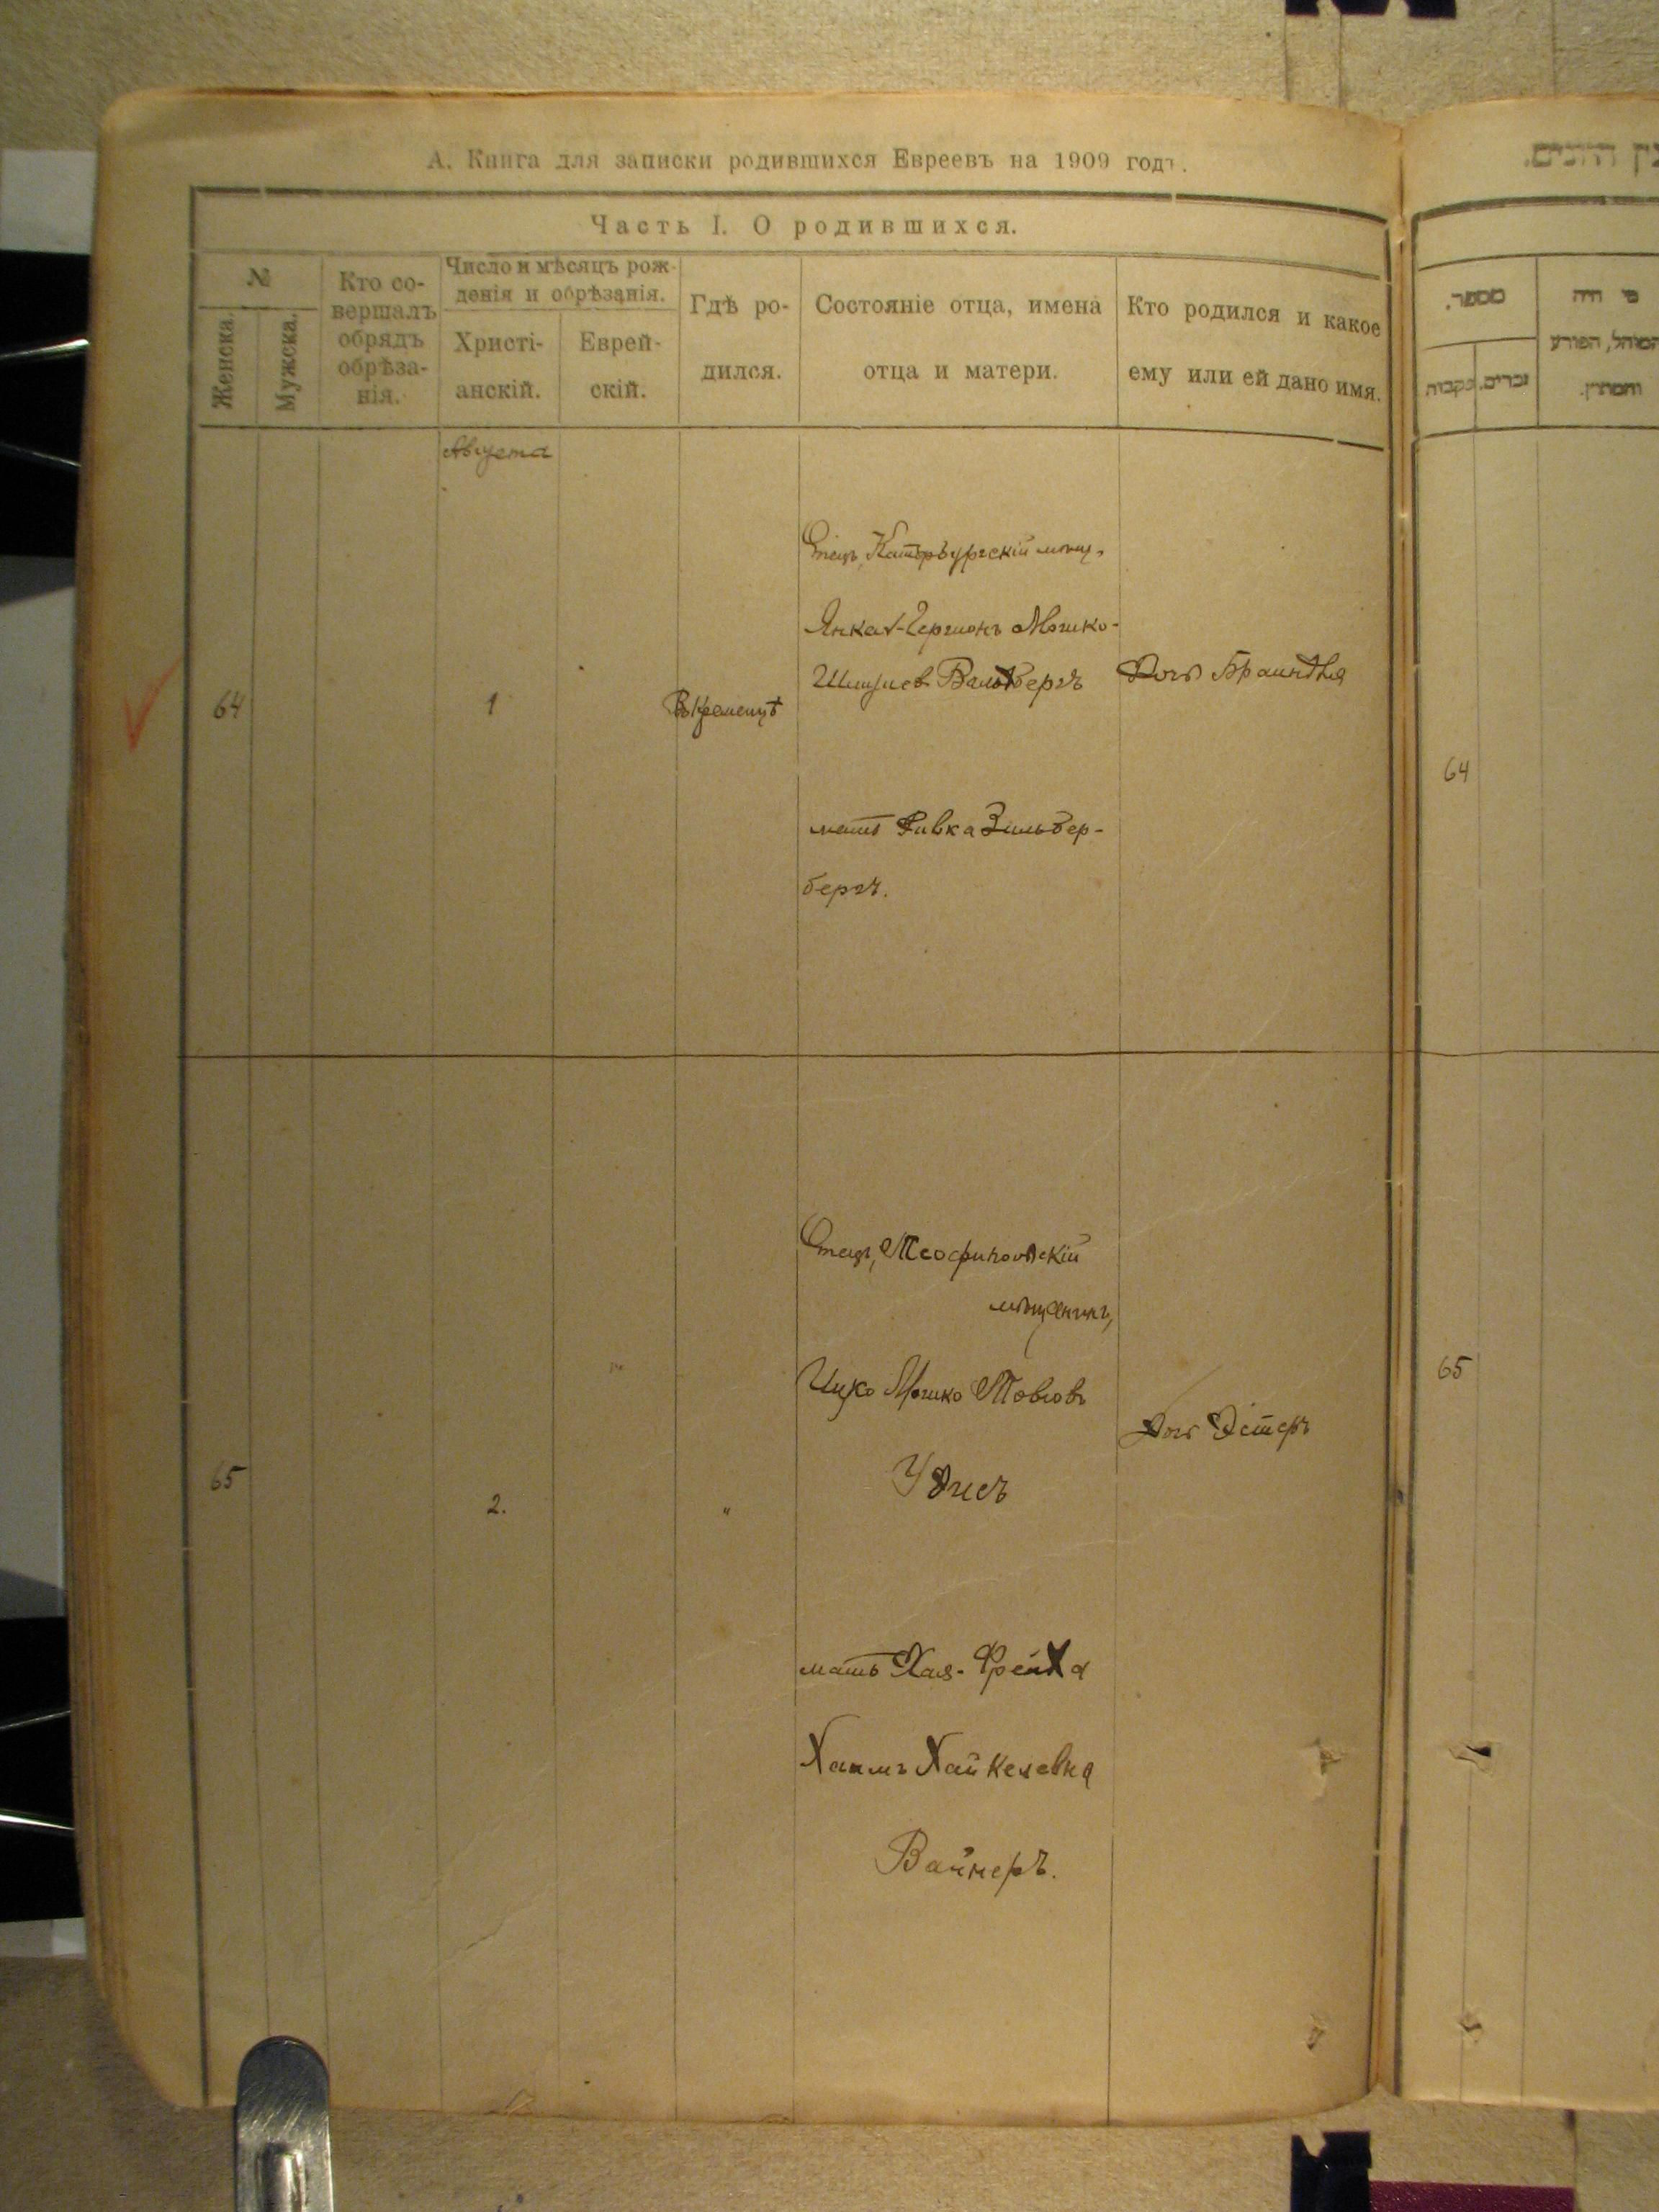 А. Книга для записки родившихся Евреевъ на 1909 годъ.
Часть I. О родившихся.
№
Женска.
Мужска.
Кто со-
вершалъ
обрядъ
обрѣза-
нія.
Число и мѣсяцъ рож-
денія и обрѣзанія.
Христі-
анскій.
Еврей-
скій.
Гдѣ ро-
дился.
Состояніе отца, имена
отца и матери.
Кто родился и какое
ему или ей дано имя.
Августа
64
1
Въ Кременцѣ
Отецъ, Катербургскій мѣщ.
Янкель-Гершонъ Мошко-
Вальбергъ
мать Ривка Зильбер-
бергъ.
Дочь Браиндля
65
2.
"
Отецъ, Теофипольскій
мѣщанинъ,
Ицко Мошко Товіовъ
Удисъ
мать Хая-Фрейда
Хаимъ Хайкелевна
Вайнеръ.
Дочь Эстеръ
מספר.
זכרים.
נקבות
מי היה
המוהל, הפורע
והמוצץ.
64
65